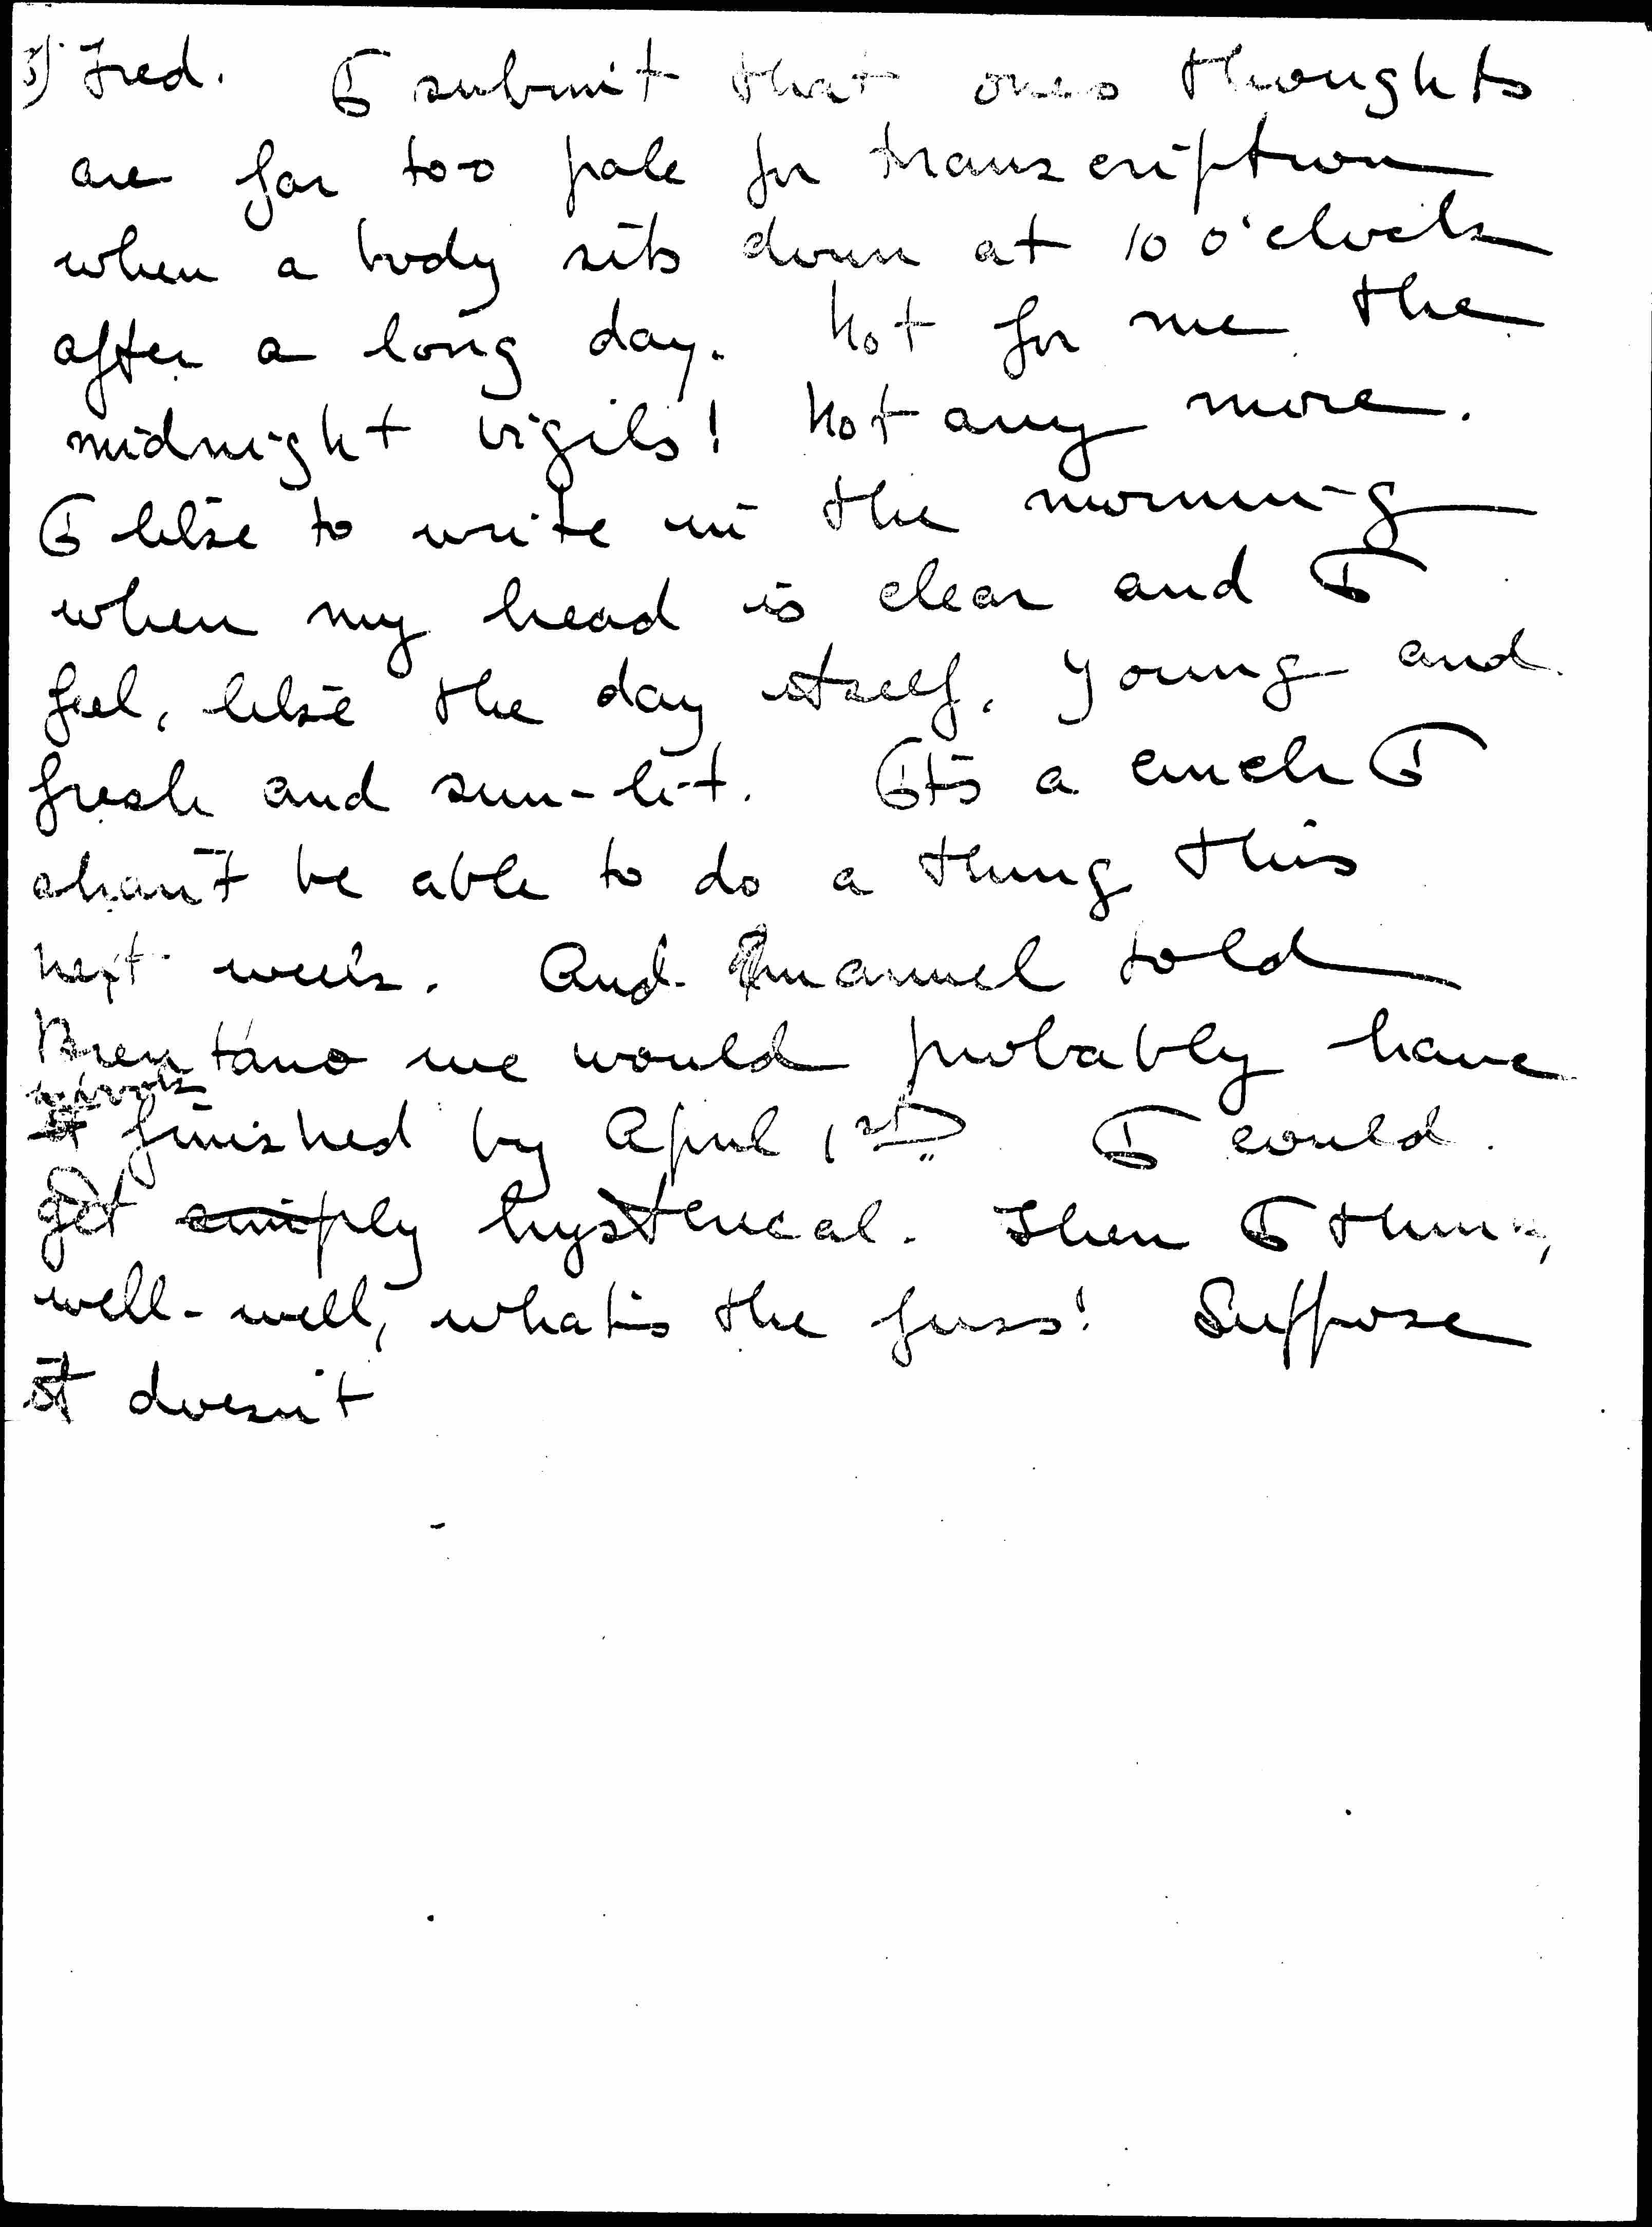 3) Fred. I submit that ones thoughts
are far too pale for transcription
when a body sits down at 10 o'clock
after a long day. Not for me the
midnight vigils! Not any more.
I like to write in the morning
when my head is clear and I
feel, like the day itself, young and
fresh and sun-lit. It's a cinch I
shan't be able to do a thing this
next week. And Emanuel told
Brentano we would probably have
finished by April 1st. I could
get simply hysterical. Then I think,
well-well, what's the fuss! Suppose
it doesn't